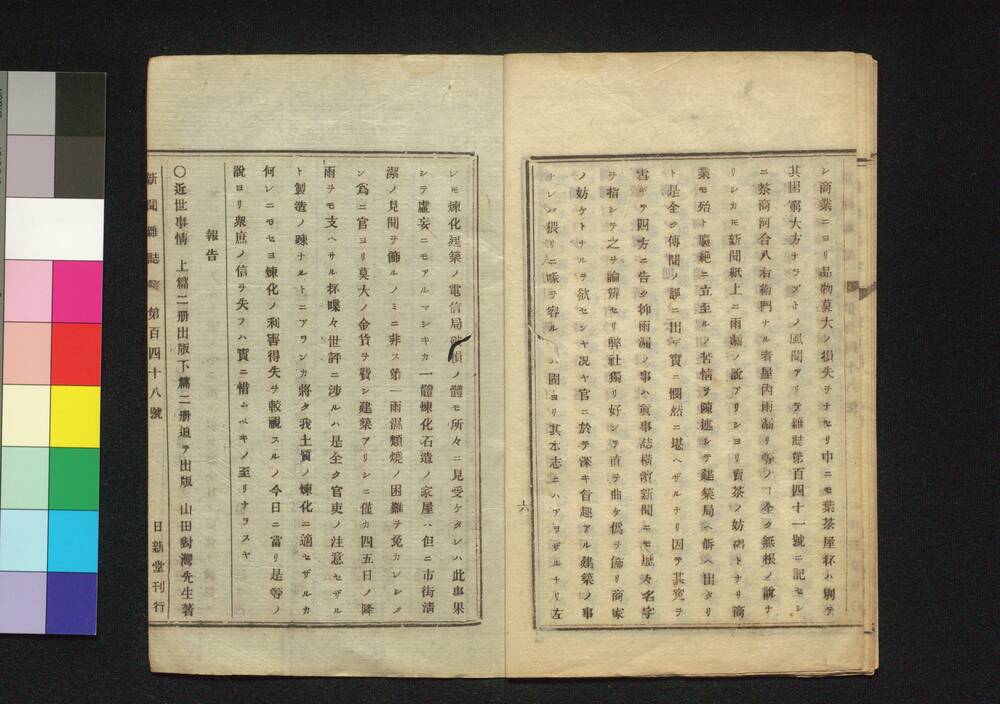 シ商業ニヨリ品物莫大ノ損失ヲナセリ中ニモ葉茶屋杯ハ別テ
其困窮大方ナラズトノ風聞アリテ雑誌第百四十一號ニ記セシ
ニ茶商河合八右衛門ナル者屋内雨漏リ等ノヿ全ク無根ノ説ナ
リシカモ新聞紙上ニ雨漏ノ說アリシヨリ賣茶ノ妨碍トナリ商
業モ殆ト廢絶ニ立至ルノ苦情ヲ陳述シテ建築局ヘ訴ヘ出タリ
ト是全ク傳聞ノ謬ニ出デ實ニ慨然ニ堪ヘザルナリ因テ其寃ヲ
雪ギテ四方ニ告ク抑雨漏ノ事ハ眞事誌横濱新聞ニモ歴々名字
ヲ指シテ之ヲ論辨セリ弊社獨リ好ンテ直ヲ曲ケ僞ヲ飾リ商家
ノ妨ケトナルヲ欲センヤ况ヤ官ニ於テ深キ旨趣アル建築ノ事
ナレバ猥リニ喙ヲ容ルヽハ固ヨリ其本志ニハアラザルナリ左
六
シモ煉化建築ノ電信局破損ノ體モ所々ニ見受ケタレハ此事果
シテ虚妄ニモアルマシキカ一體煉化石造ノ家屋ハ但ニ市街清
潔ノ見聞ヲ飾ルノミニ非ス第一雨濕類燒ノ困難ヲ免カレシメ
ン爲ニ官ヨリ莫大ノ金貨ヲ費シ建築アリシニ僅カ四五日ノ降
雨ヲモ支ヘサル杯喋々世評ニ涉ルハ是全ク官吏ノ注意セザル
ト製造ノ疎ナルトニアランカ將タ我土質ノ煉化ニ適セザルカ
何レニモセヨ煉化ノ利害得失ヲ較視スルノ今日ニ當リ是等ノ
說ヨリ衆庶ノ信ヲ失フハ實ニ惜ムベキノ至リナラスヤ
報告
〇近世事情 上篇二册出版下篇二册追テ出版 山田對灣先生著
新聞雜誌 第百四十八號 日新堂刊行